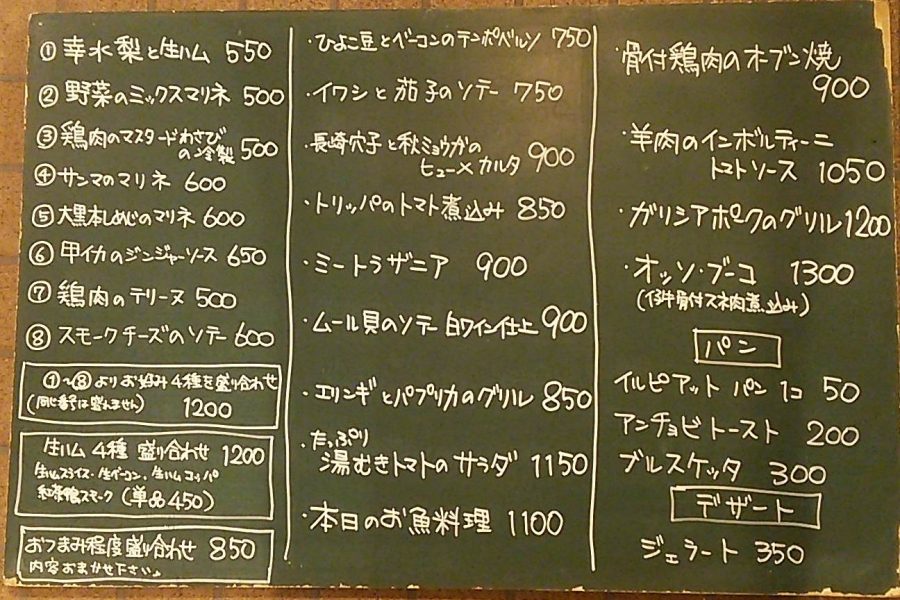 ① 幸水梨と生ハム 550
② 野菜のミックスマリネ 500
③ 鶏肉のマスタードわさび
の冷製 500
④ サンマのマリネ 600
⑤ 大黒本しめじのマリネ 600
⑥ 甲イカのジンジャーソース 650
⑦ 鶏肉のテリーヌ 500
⑧ スモークチーズのソテー 600
①〜⑧よりお好み4種を盛り合わせ
(同じ番号は盛れません) 1200
生ハム4種 盛り合わせ 1200
生ハムスライス・生ベーコン、生ハムコッパ
紅茶鴨スモーク (単品450)
おつまみ程度盛り合わせ 850
内容おまかせ下さい♪
・ひよこ豆とベーコンのテンポベルソ 750
・イワシと茄子のソテー 750
・長崎穴子と秋ミョウガの
ヒューメカルタ 900
・トリッパのトマト煮込み 850
・ミートラザニア 900
・ムール貝のソテー白ワイン仕上 900
・エリンギとパプリカのグリル 850
・たっぷり
湯むきトマトのサラダ 1150
・本日のお魚料理 1100
・骨付鶏肉のオーブン焼
900
・羊肉のインボルティーニ
トマトソース 1050
・ガリシアポークのグリル 1200
・オッソ・ブーコ 1300
(仔牛骨付スネ肉煮込み)
パン
イルピアット パン 1コ 50
アンチョビトースト 200
ブルスケッタ 300
デザート
ジェラート 350